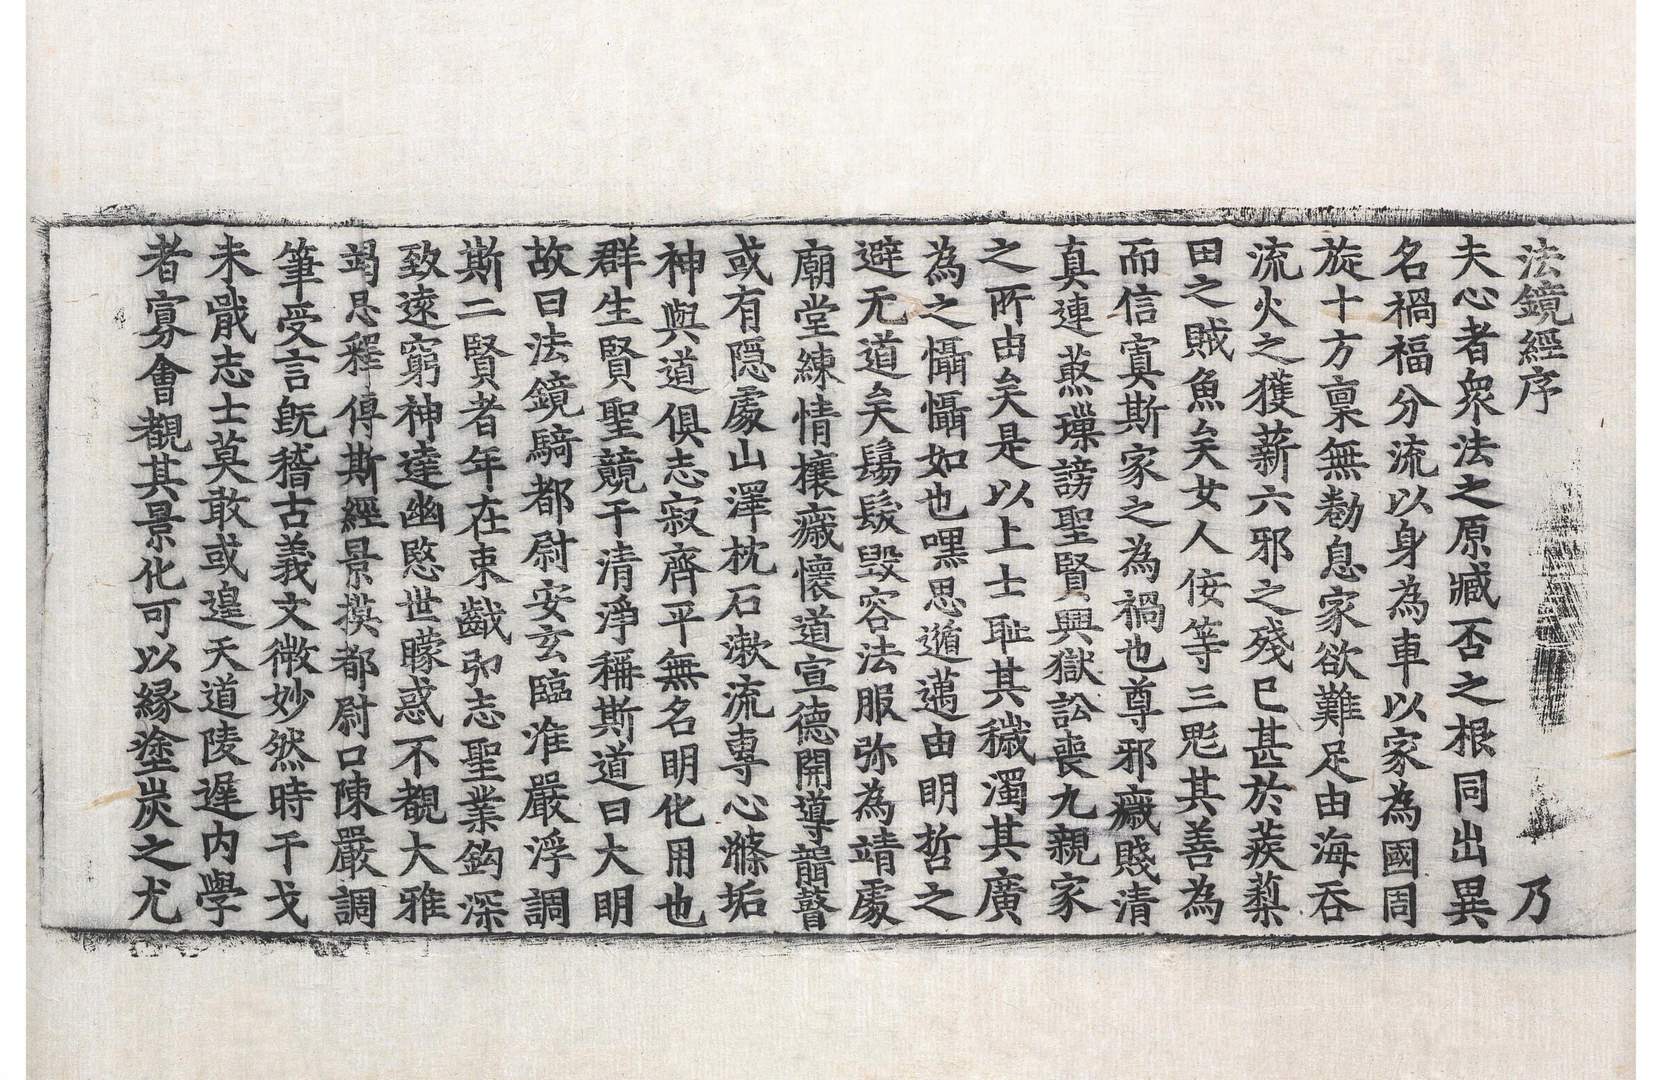 法鏡經序 乃
夫心者衆法之原臧否之根同出異
名禍福分流以身為車以家為國周
旋十方稟無勌息家欲難足由海吞
流火之獲薪六邪之殘已甚於蒺䔧
田之賊魚矣女人佞等三魁其善為
而信寡斯家之為禍也尊邪穢賤清
真連藂瑣謗聖賢興獄訟喪九親家
之所由矣是以上士恥其穢濁其廣
為之懾懾如也嘿思遁邁由明哲之
避无道矣鬄髮毀容法服弥為靖處
廟堂練情攘穢懷道宣德開導聾瞽
或有隱處山澤枕石漱流專心滌垢
神與道俱志寂齊平無名明化用也
群生賢聖競于清淨稱斯道曰大明
故曰法鏡騎都尉安玄臨淮嚴浮調
斯二賢者年在束齓弘志聖業鈎深
致遠窮神達幽愍世矇惑不覩大雅
竭思釋傳斯經景摸都尉口陳嚴調
筆受言既稽古義文微妙然時干戈
未戢志士莫敢或遑天道陵遲内學
者寡會覩其景化可以緣塗炭之尤